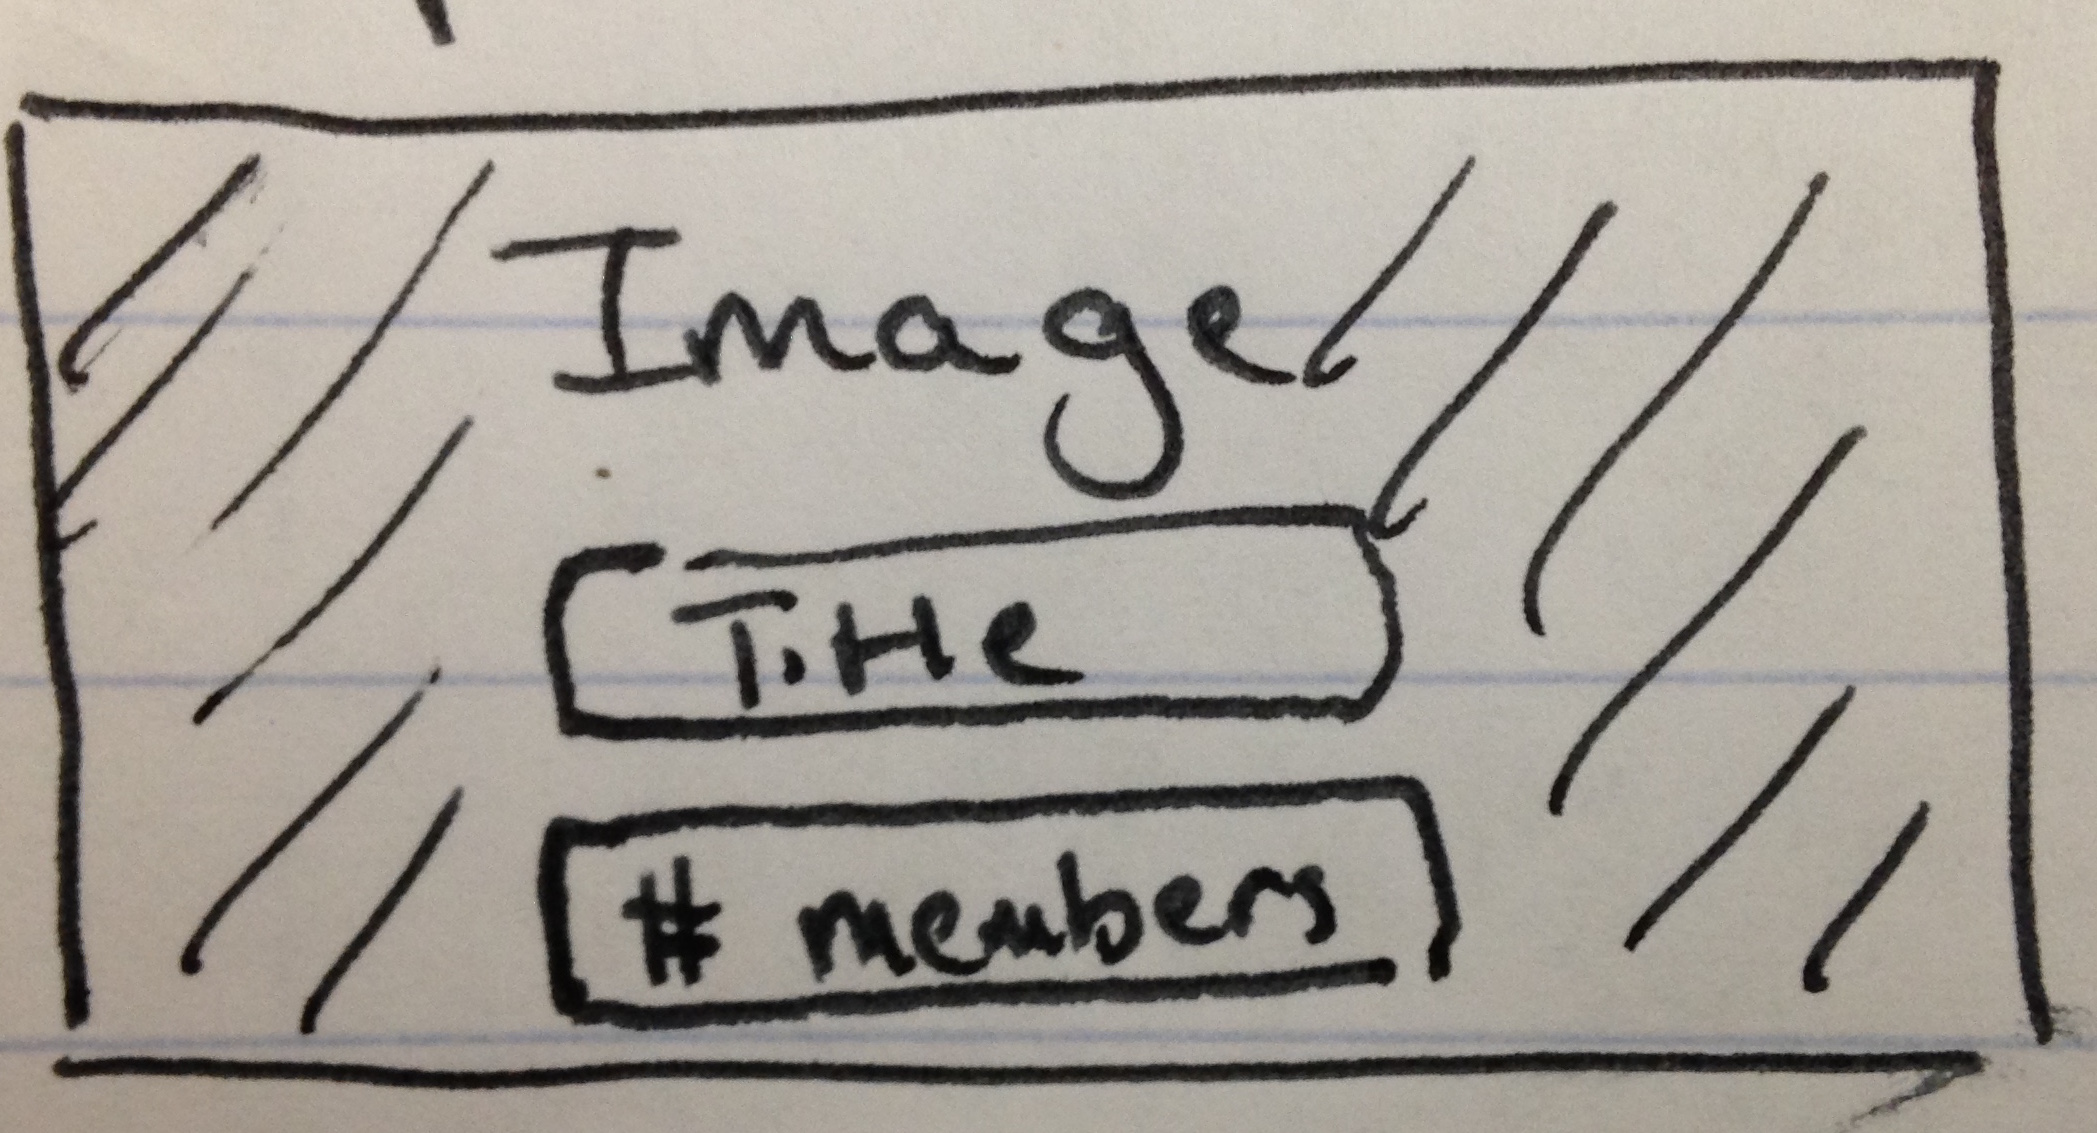 Image
Title
# members